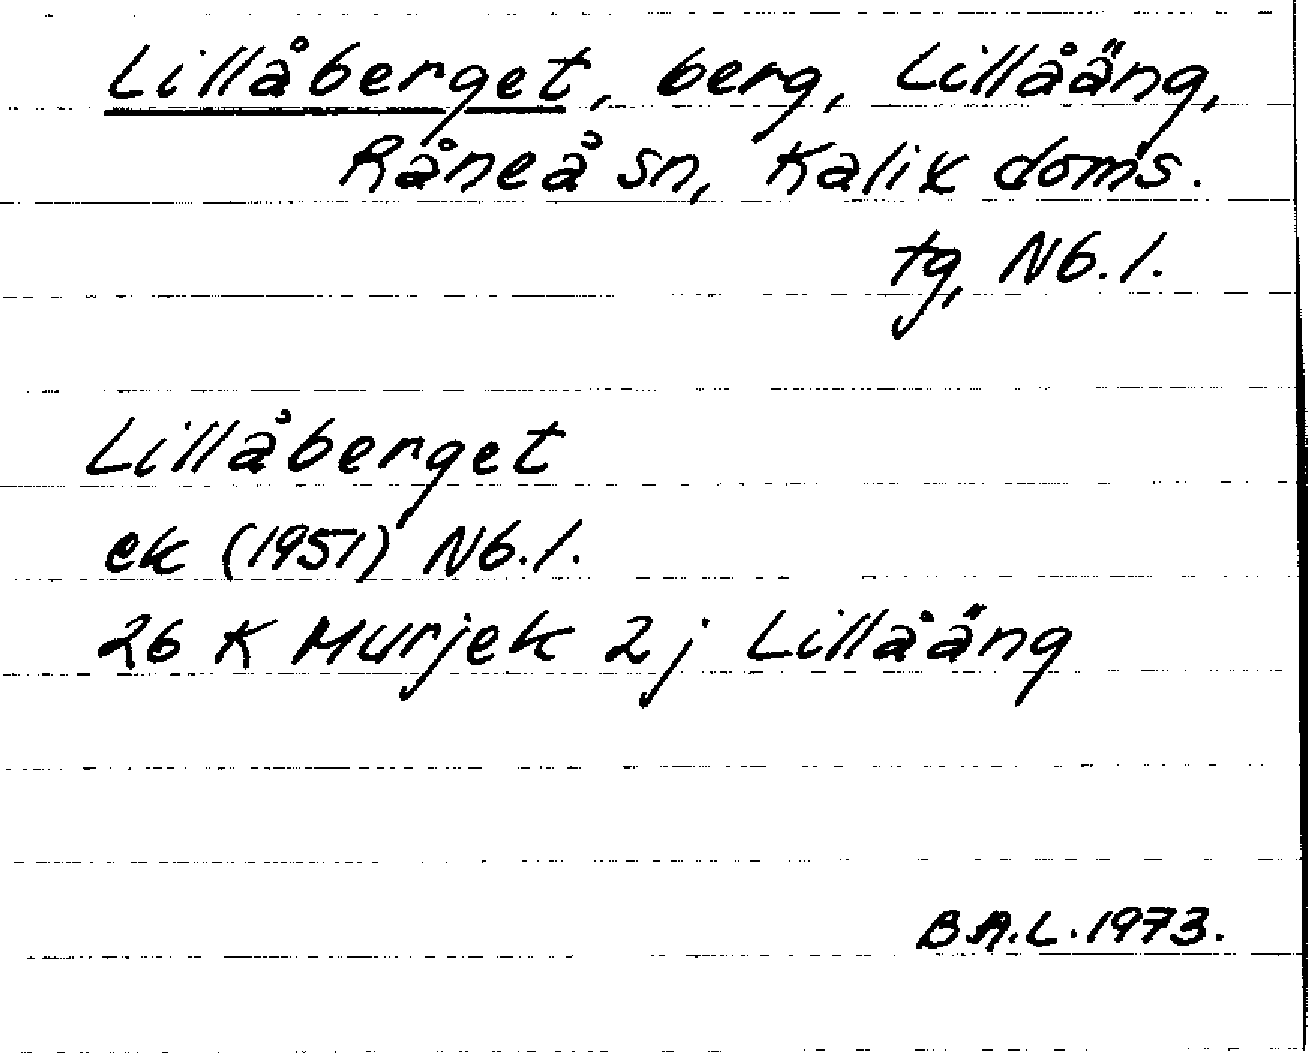 Lillåberget, berg, Lillååäng,
Råneå sn, Kalix doms.
tg, Nb. l.
Lillåberget
ek (1951) Nb. l.
26 K Murjek 2j Lillåäng
B.A.L. 1973.